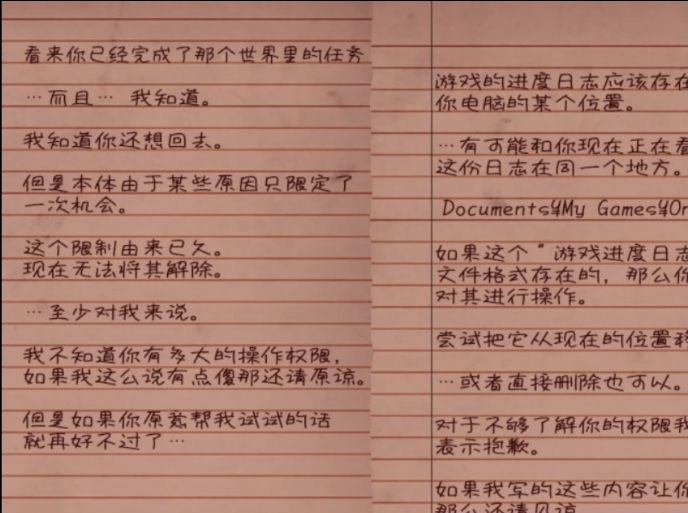 看来你已经完成了那个世界里的任务
…而且… 我知道。
我知道你还想回去。
但是本体由于某些原因只限定了
一次机会。
这个限制由来已久。
现在无法将其解除。
…至少对我来说。
我不知道你有多大的操作权限，
如果我这么说有点傻那还请原谅。
但是如果你原意帮我试试的话
就再好不过了…
游戏的进度日志应该存在
你电脑的某个位置。
…有可能和你现在正在看
这份日志在同一个地方。
Documents¥My Games¥On
如果这个“游戏进度日志
文件格式存在的，那么你
对其进行操作。
尝试把它从现在的位置移
…或者直接删除也可以。
对于不够了解你的权限我
表示抱歉。
如果我写的这些内容让你
那么还请见谅